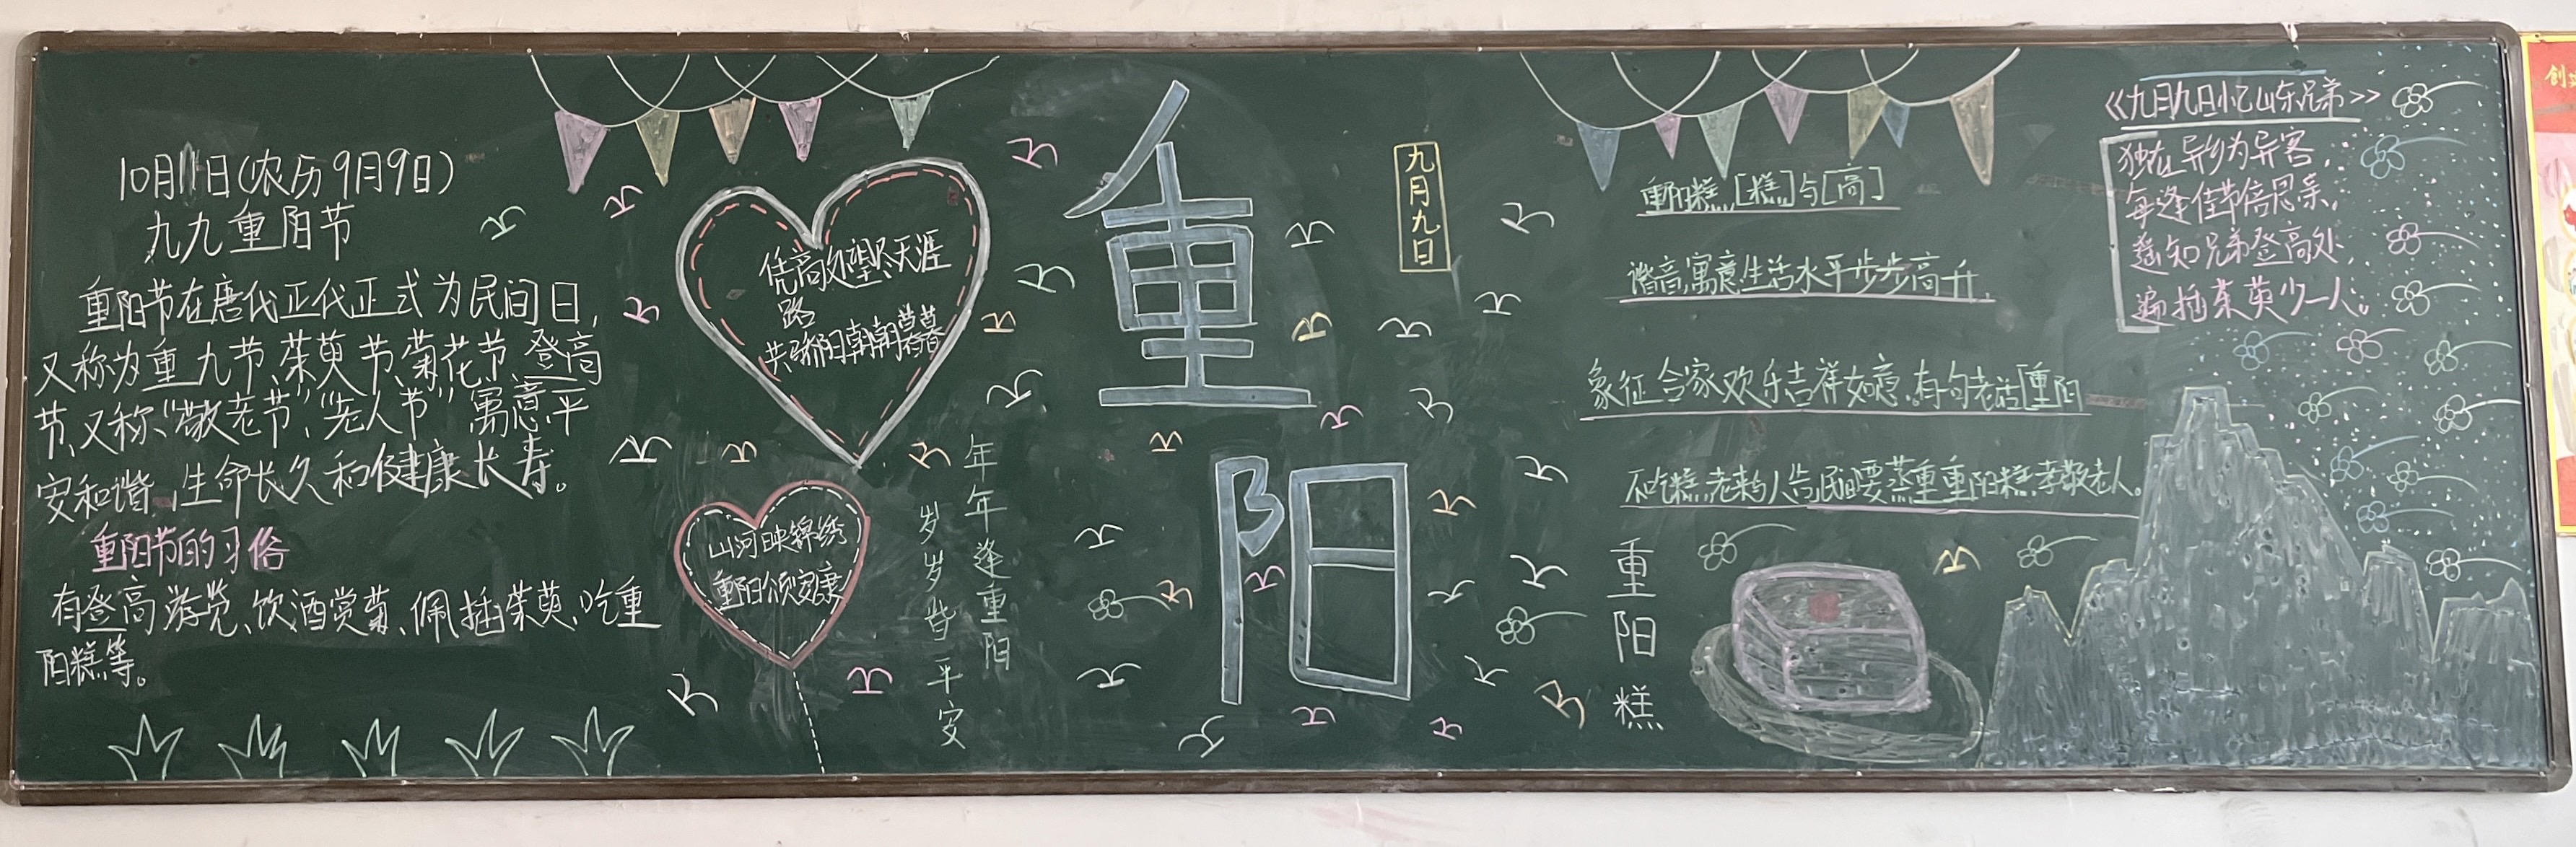 10月11日(农历9月9日)
九九重阳节
重阳节在唐代正代正式为民间日,
又称为重九节、茱萸节、菊花节、登高
节、又称“敬老节”、“老人节”寓意平
安和谐、生命长久和健康长寿。
重阳节的习俗
有登高游览、饮酒赏菊、佩插茱萸、吃重
阳糕等。
凭高处望尽天涯
路
共骄阳朝朝暮暮
山河映锦绣
重阳颂安康
年年逢重阳
岁岁皆平安
重
阳
九月九日
重阳糕,[糕]与[高]
谐音,寓意生活水平步步高升,
象征合家欢乐吉祥如意,有句老话[重阳
不吃糕,老来与人告,民间要蒸重重阳糕,孝敬老人。
重阳糕
《九月九日忆山东兄弟>>
独在异乡为异客,
每逢佳节倍思亲,
遥知兄弟登高处,
遍插茱萸少一人。